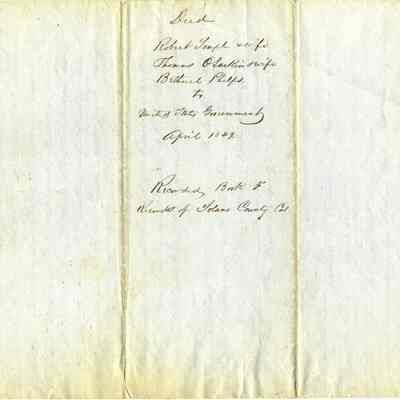 Deed
Robert Semple & wife
Thomas O Larkin & wife
Bethuel Phelps
to
United States Government
April 1849
Recorded, Book F
Records of Solano County Cal